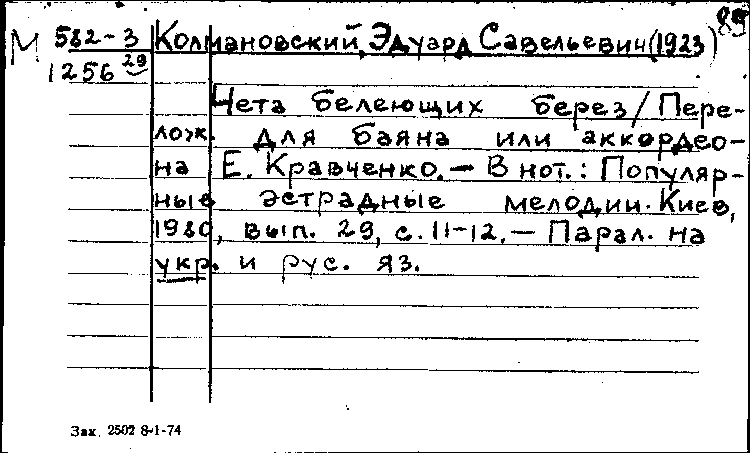 89
М 582-3 Колмановский, Эдуард Савельевич (1923)
1256 29
Чета белеющих берез/Пере-
лож. для баяна или аккордео-
на Е. Кравченко. — В нот.: Популяр-
ные эстрадные мелодии. Киев,
1980, вып. 29, с. 11-12. — Парал. на
укр. и рус. яз.
Зак. 2502 8-1-74